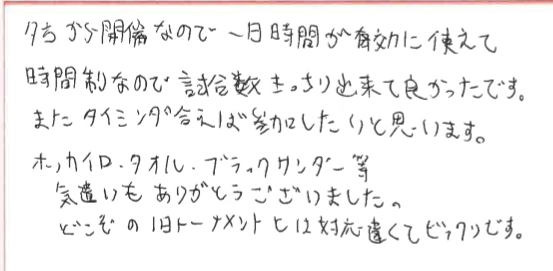 夕方から開催なので一日時間が有効に使えて
時間制なので試合数きっちり出来て良かったです。
またタイミング合えば参加したいと思います。
ホッカイロ・タオル・ブラックサンダー等
気遣いもありがとうございました。
どこぞの1日トーナメントとは対応違くてビックリです。